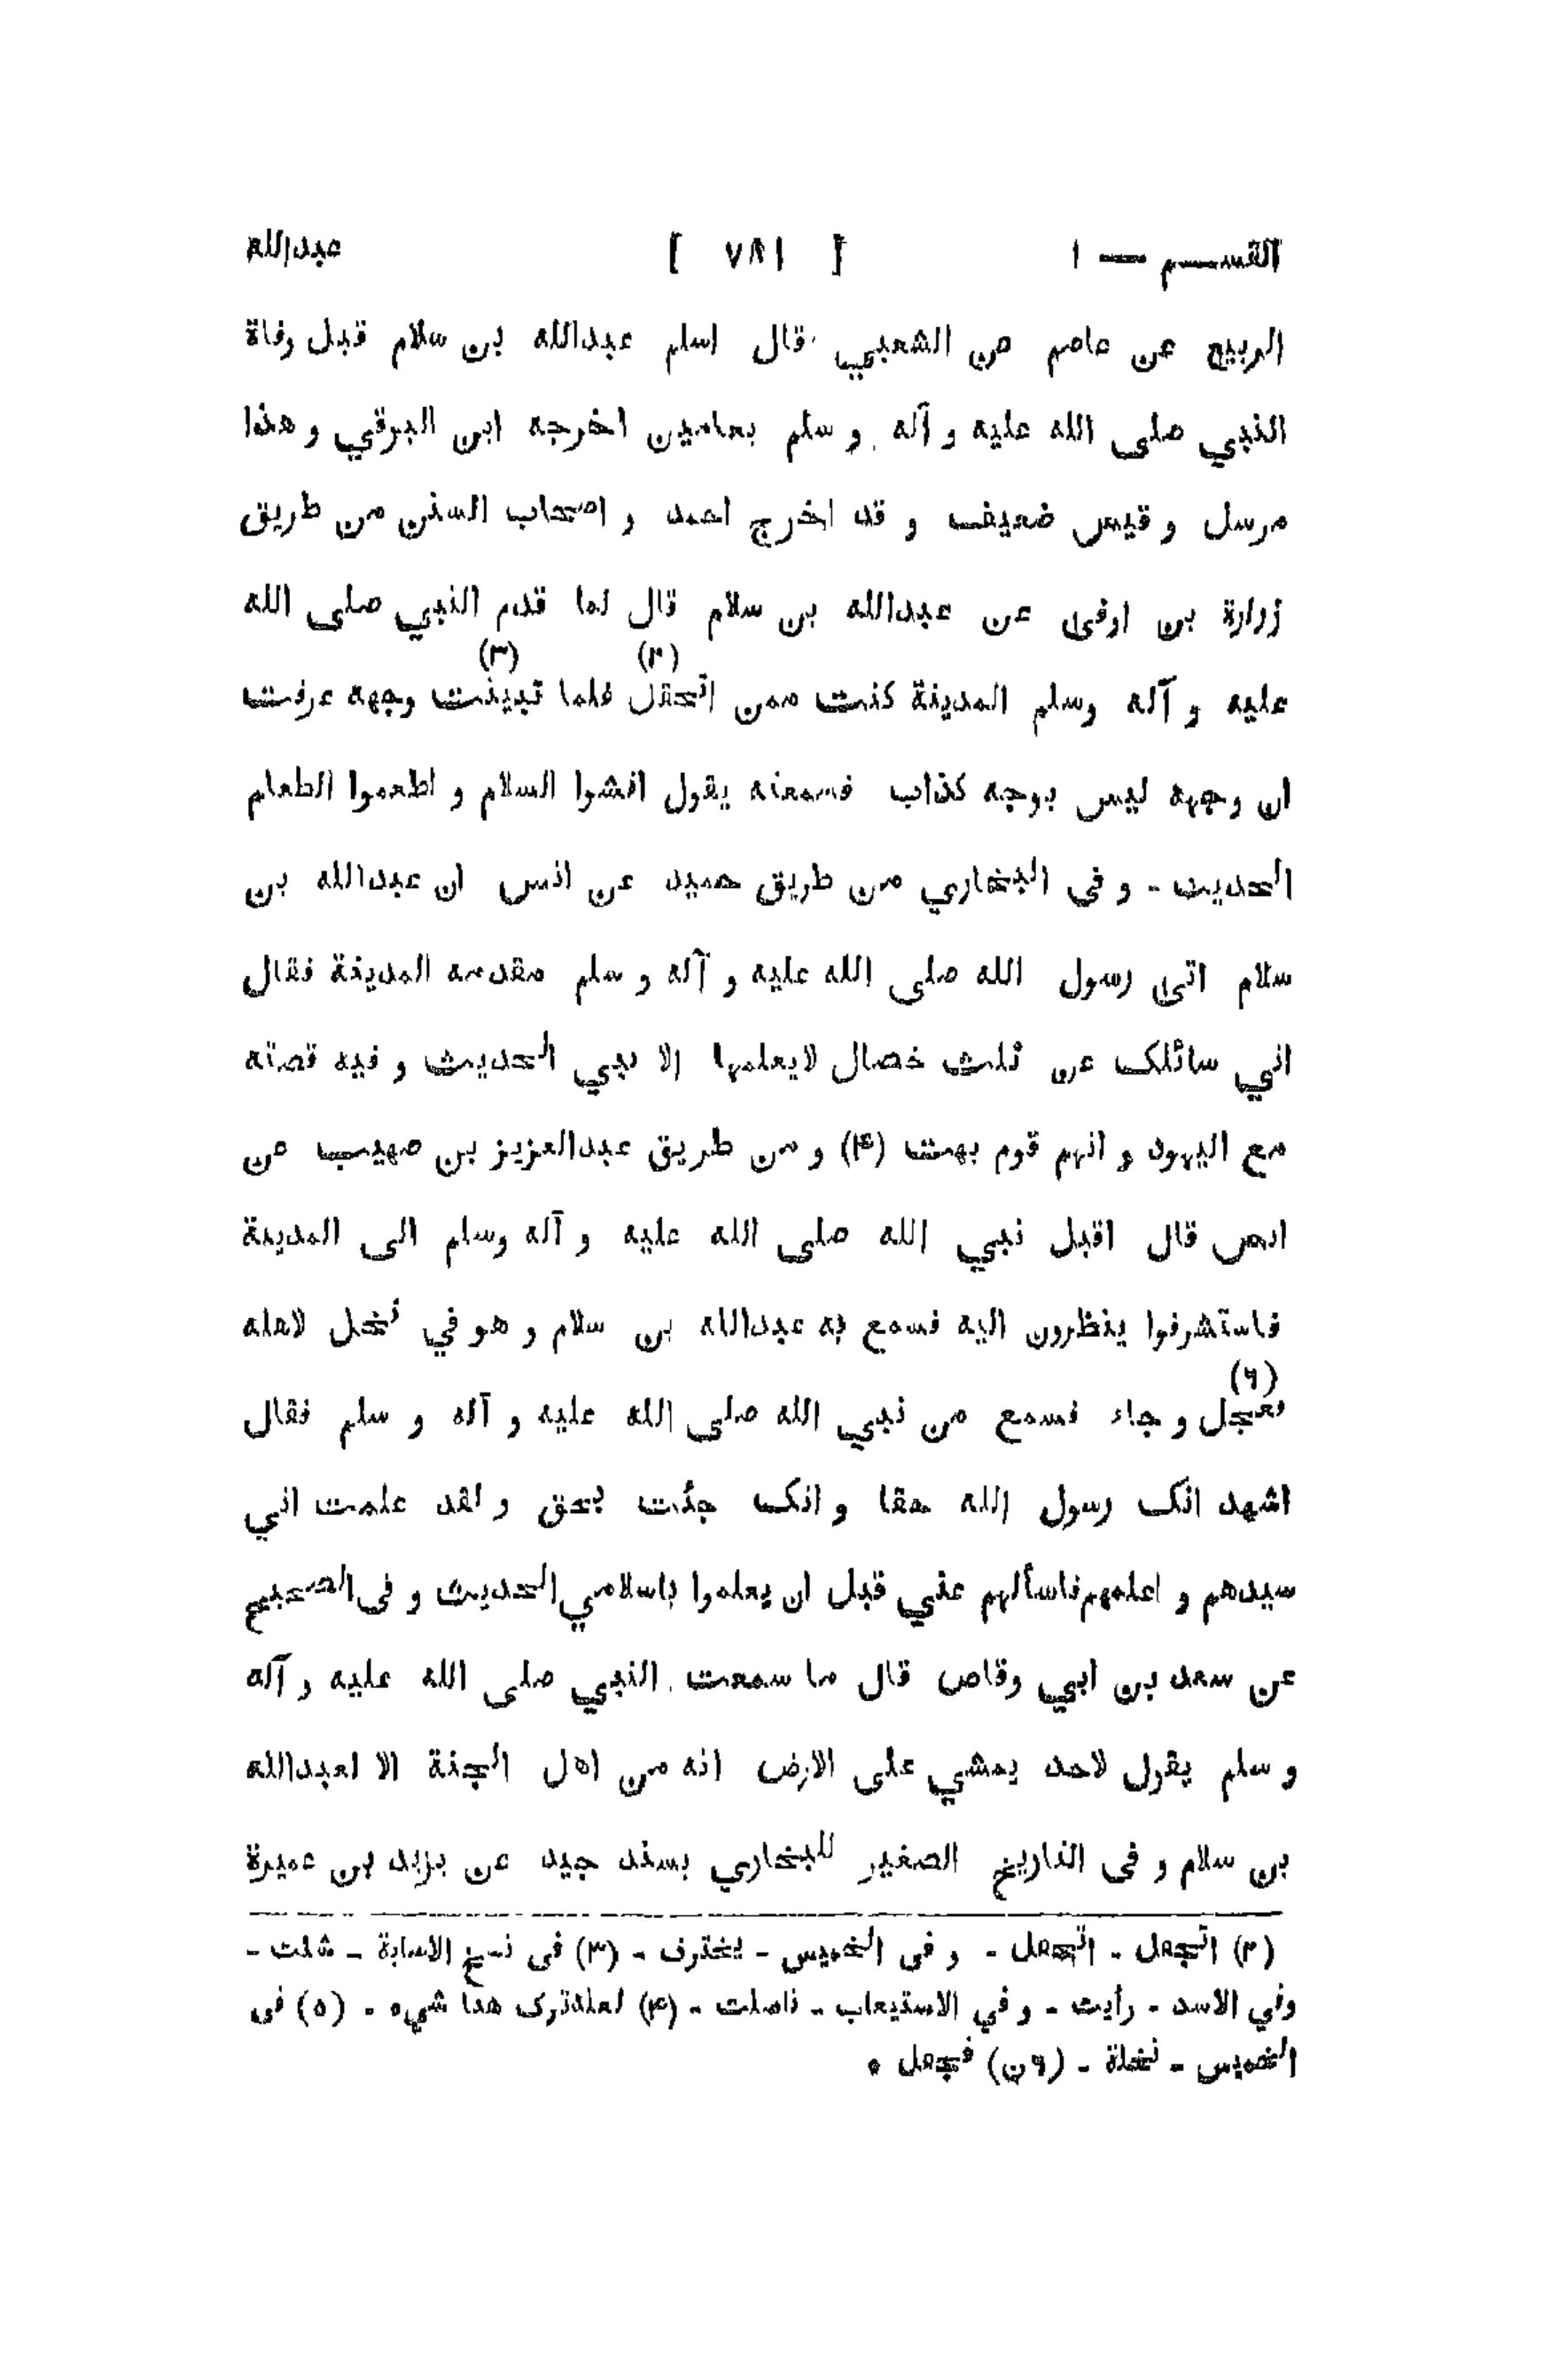 القســم — ١ [ ٧٨١ ] عبدالله
الربيع عن عاصم عن الشعبي قال اسلم عبدالله بن سلام قبل وفاة
النبي صلى الله عليه و آله و سلم بعامين اخرجه ابن البرقي و هذا
مرسل و قيس ضعيف و قد اخرج احمد و اصحاب السنن من طريق
زرارة بن اوفى عن عبدالله بن سلام قال لما قدم النبي صلى الله
عليه و آله وسلم المدينة كنت ممن انحفل (٢) فلما تبينت (٣) وجهه عرفت
ان وجهه ليس بوجه كذاب فسمعته يقول افشوا السلام و اطعموا الطعام
الحديث - و فى البخاري من طريق حميد عن انس ان عبدالله بن
سلام اتى رسول الله صلى الله عليه و آله و سلم مقدمه المدينة فقال
اني سائلك عن ثلث خصال لايعلمها الا نبي الحديث و فيه قصته
مع اليهود و انهم قوم بهت (۴) و من طريق عبدالعزيز بن صهيب عن
انس قال اقبل نبي الله صلى الله عليه و آله وسلم الى المدينة
فاستشرفوا ينظرون اليه فسمع به عبدالله بن سلام و هو في نخل لاهله
فعجل (٦) و جاء فسمع من نبي الله صلى الله عليه و آله و سلم فقال
اشهد انك رسول الله حقا و انك جئت بحق و لقد علمت اني
سيدهم و اعلمهم فاسألهم عني قبل ان يعلموا باسلامي الحديث و فى الصحيح
عن سعد بن ابي وقاص قال ما سمعت النبي صلى الله عليه و آله
و سلم يقول لاحد يمشي على الارض انه من اهل الجنة الا لعبدالله
بن سلام و فى التاريخ الصغير للبخاري بسند جيد عن يزيد بن عميرة
(٢) اتجهل - انجفل - و فى الخميس - يخترف - (٣) فى نسخ الاصابة - شلت -
وفي الاسد - رأيت - و في الاستيعاب - تاملت - (۴) لعله ترك هنا شيء - (٥) فى
الخميس - نخلة - (٦ن) فجعل ٠